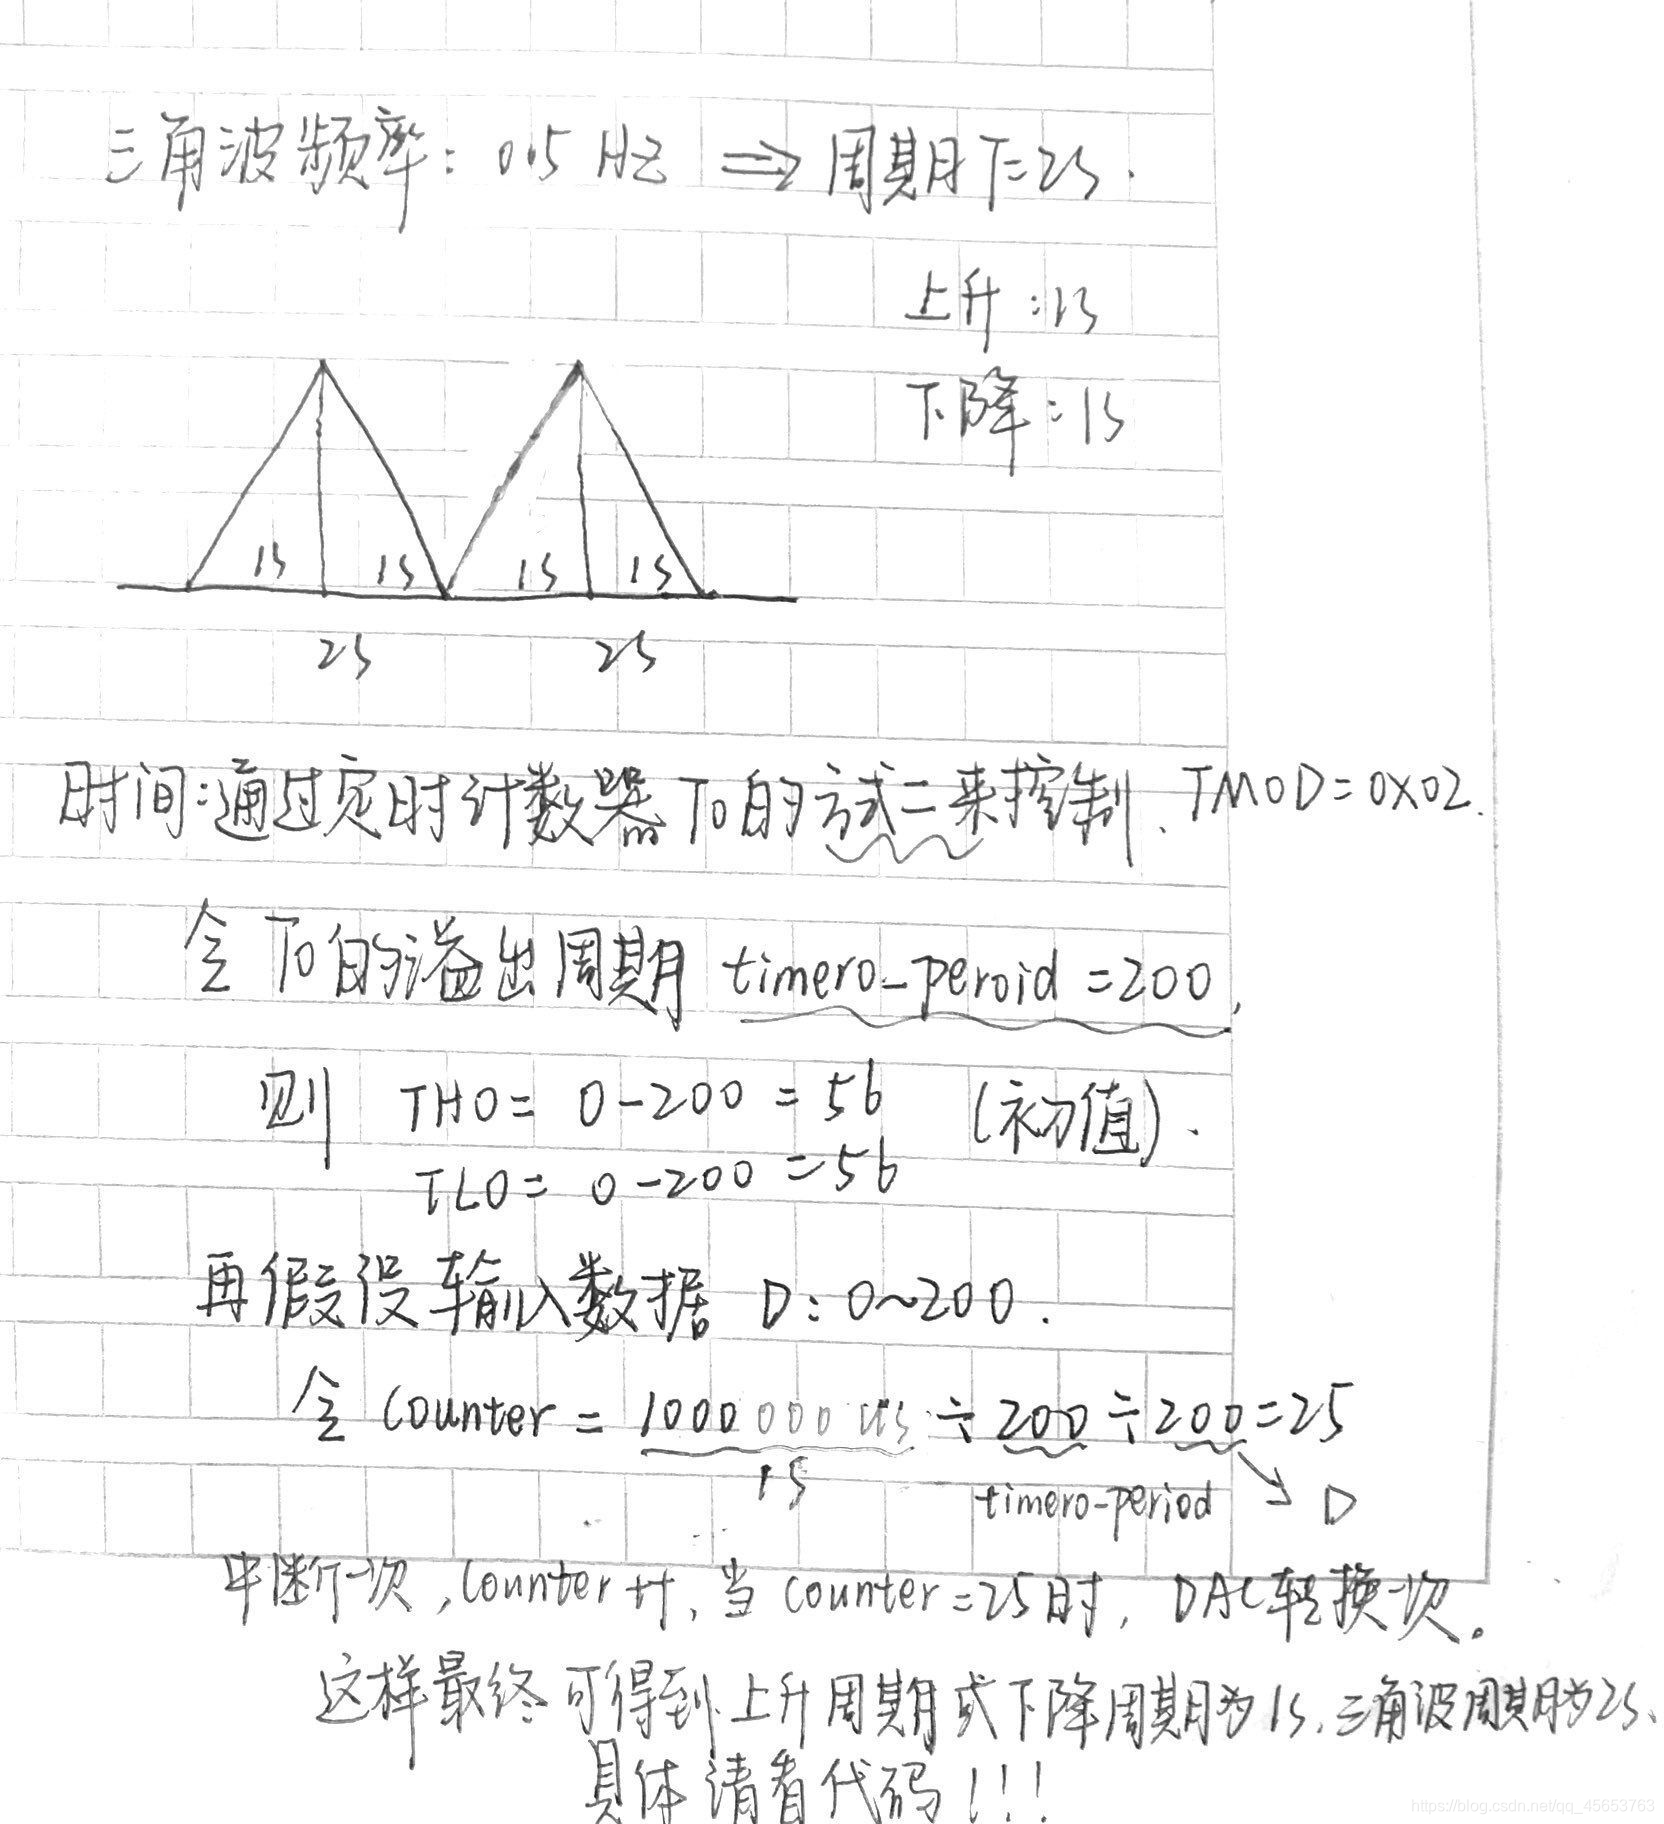 三角波频率: 0.5 HZ ⇒ 周期T=2s.
上升:1s
下降:1s
1s 1s 1s 1s
2s 2s
时间:通过定时计数器T0的方式二来控制、TMOD=0X02.
令T0的溢出周期 timer0-peroid=200,
则 TH0= 0-200=56 (初值).
TL0= 0-200=56
再假设输入数据 D: 0~200.
令 Counter = 1000 000 us ÷ 200 ÷ 200=25
1s timer0-period D
中断一次,Counter++,当 counter=25时,DAC转换一次。
这样最终可得到上升周期或下降周期为1s.三角波周期为2s、
具体请看代码!!!
https://blog.csdn.net/qq_45653763